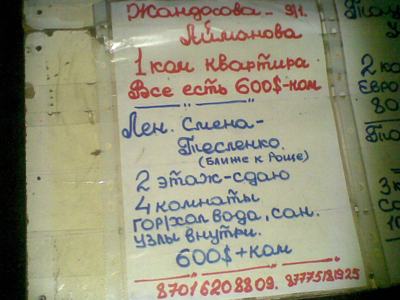 Жандосова - 9/1.
Лиманова
1 ком квартира
Все есть 600$-ком
Лен. Смена-
Тесленко.
(ближе к Роще)
2 этаж-сдаю
4 комнаты
гор/хол вода, сан.
узлы внутри.
600$ + ком
87016208809. 87775181925
2 ко
Евро
80
3 к